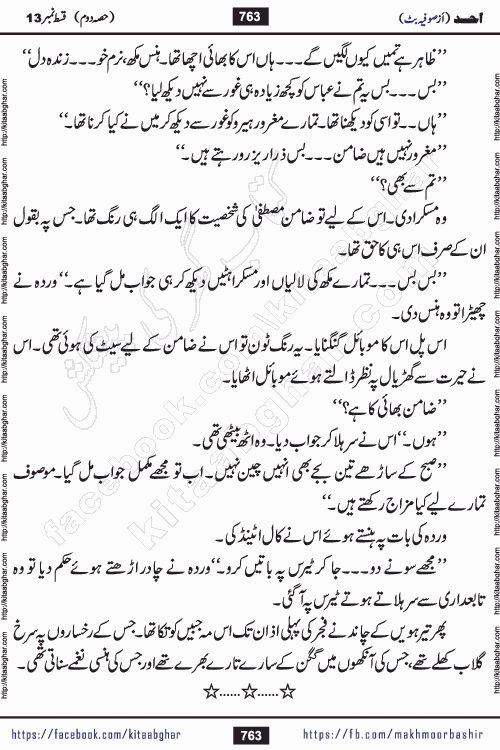 اُحسد (از صوفیہ بٹ) 763 (حصہ دوم) قسط نمبر 13
’’ظاہر ہے تمہیں کیوں لگیں گے۔۔۔ہاں اس کا بھائی اچھا تھا۔ ہنس مکھ، نرم خو۔۔۔زندہ دل‘‘
’’بس۔۔۔بس یہ تم نے عباس کو کچھ زیادہ ہی غور سے نہیں دیکھ لیا؟‘‘
’’ہاں۔۔تو اسی کو دیکھنا تھا۔ تمہارے مغرور ہیرو کو غور سے دیکھ کر میں نے کیا کرنا تھا۔‘‘
’’مغرور نہیں ہیں ضامن۔۔۔بس ذرا ریزرو رہتے ہیں۔‘‘
’’تم سے بھی؟‘‘
وہ مسکرا دی۔ اس کے لیے تو ضامن مصطفیٰ کی شخصیت کا ایک الگ ہی رنگ تھا۔ جس پہ بقول
ان کے صرف اس ہی کا حق تھا۔
’’بس بس۔۔۔تمہارے مکھ کی لالیاں اور مسکراہٹیں دیکھ کر ہی جواب مل گیا ہے۔‘‘ وردہ نے
چھیڑا تو وہ ہنس دی۔
اس پل اس کا موبائل گنگنایا۔ یہ رنگ ٹون تو اس نے ضامن کے لیے سیٹ کی ہوئی تھی۔ اس
نے حیرت سے گھڑیال پہ نظر ڈالتے ہوئے موبائل اٹھایا۔
’’ضامن بھائی کا ہے؟‘‘
’’ہوں۔‘‘ اس نے سر ہلا کر جواب دیا۔ وہ اٹھ بیٹھی تھی۔
’’صبح کے ساڑھے تین بجے بھی انہیں چین نہیں۔ اب تو مجھے مکمل جواب مل گیا۔ موصوف
تمہارے لیے کیا مزاج رکھتے ہیں۔‘‘
وردہ کی بات پہ ہنستے ہوئے اس نے کال اٹینڈ کی۔
’’مجھے سونے دو۔۔۔جا کر ٹیرس پہ باتیں کرو۔‘‘ وردہ نے چادر اڑھتے ہوئے حکم دیا تو وہ
تابعداری سے سر ہلاتے ہوئے ٹیرس پہ آ گئی۔
پھر تیرہویں کے چاند نے فجر کی پہلی اذان تک اس مہ جبیں کو تکا تھا۔ جس کے رخساروں پہ سرخ
گلاب کھلے تھے، جس کی آنکھوں میں گگن کے سارے تارے بھرے تھے اور جس کی ہنسی نغمے سناتی تھی۔
☆......☆......☆
http://kitaabghar.com
کتاب گھر کی پیشکش
facebook.com/kitaabghar
kitaabghar.com
https://facebook.com/kitaabghar 763 https://fb.com/makhmoorbashir